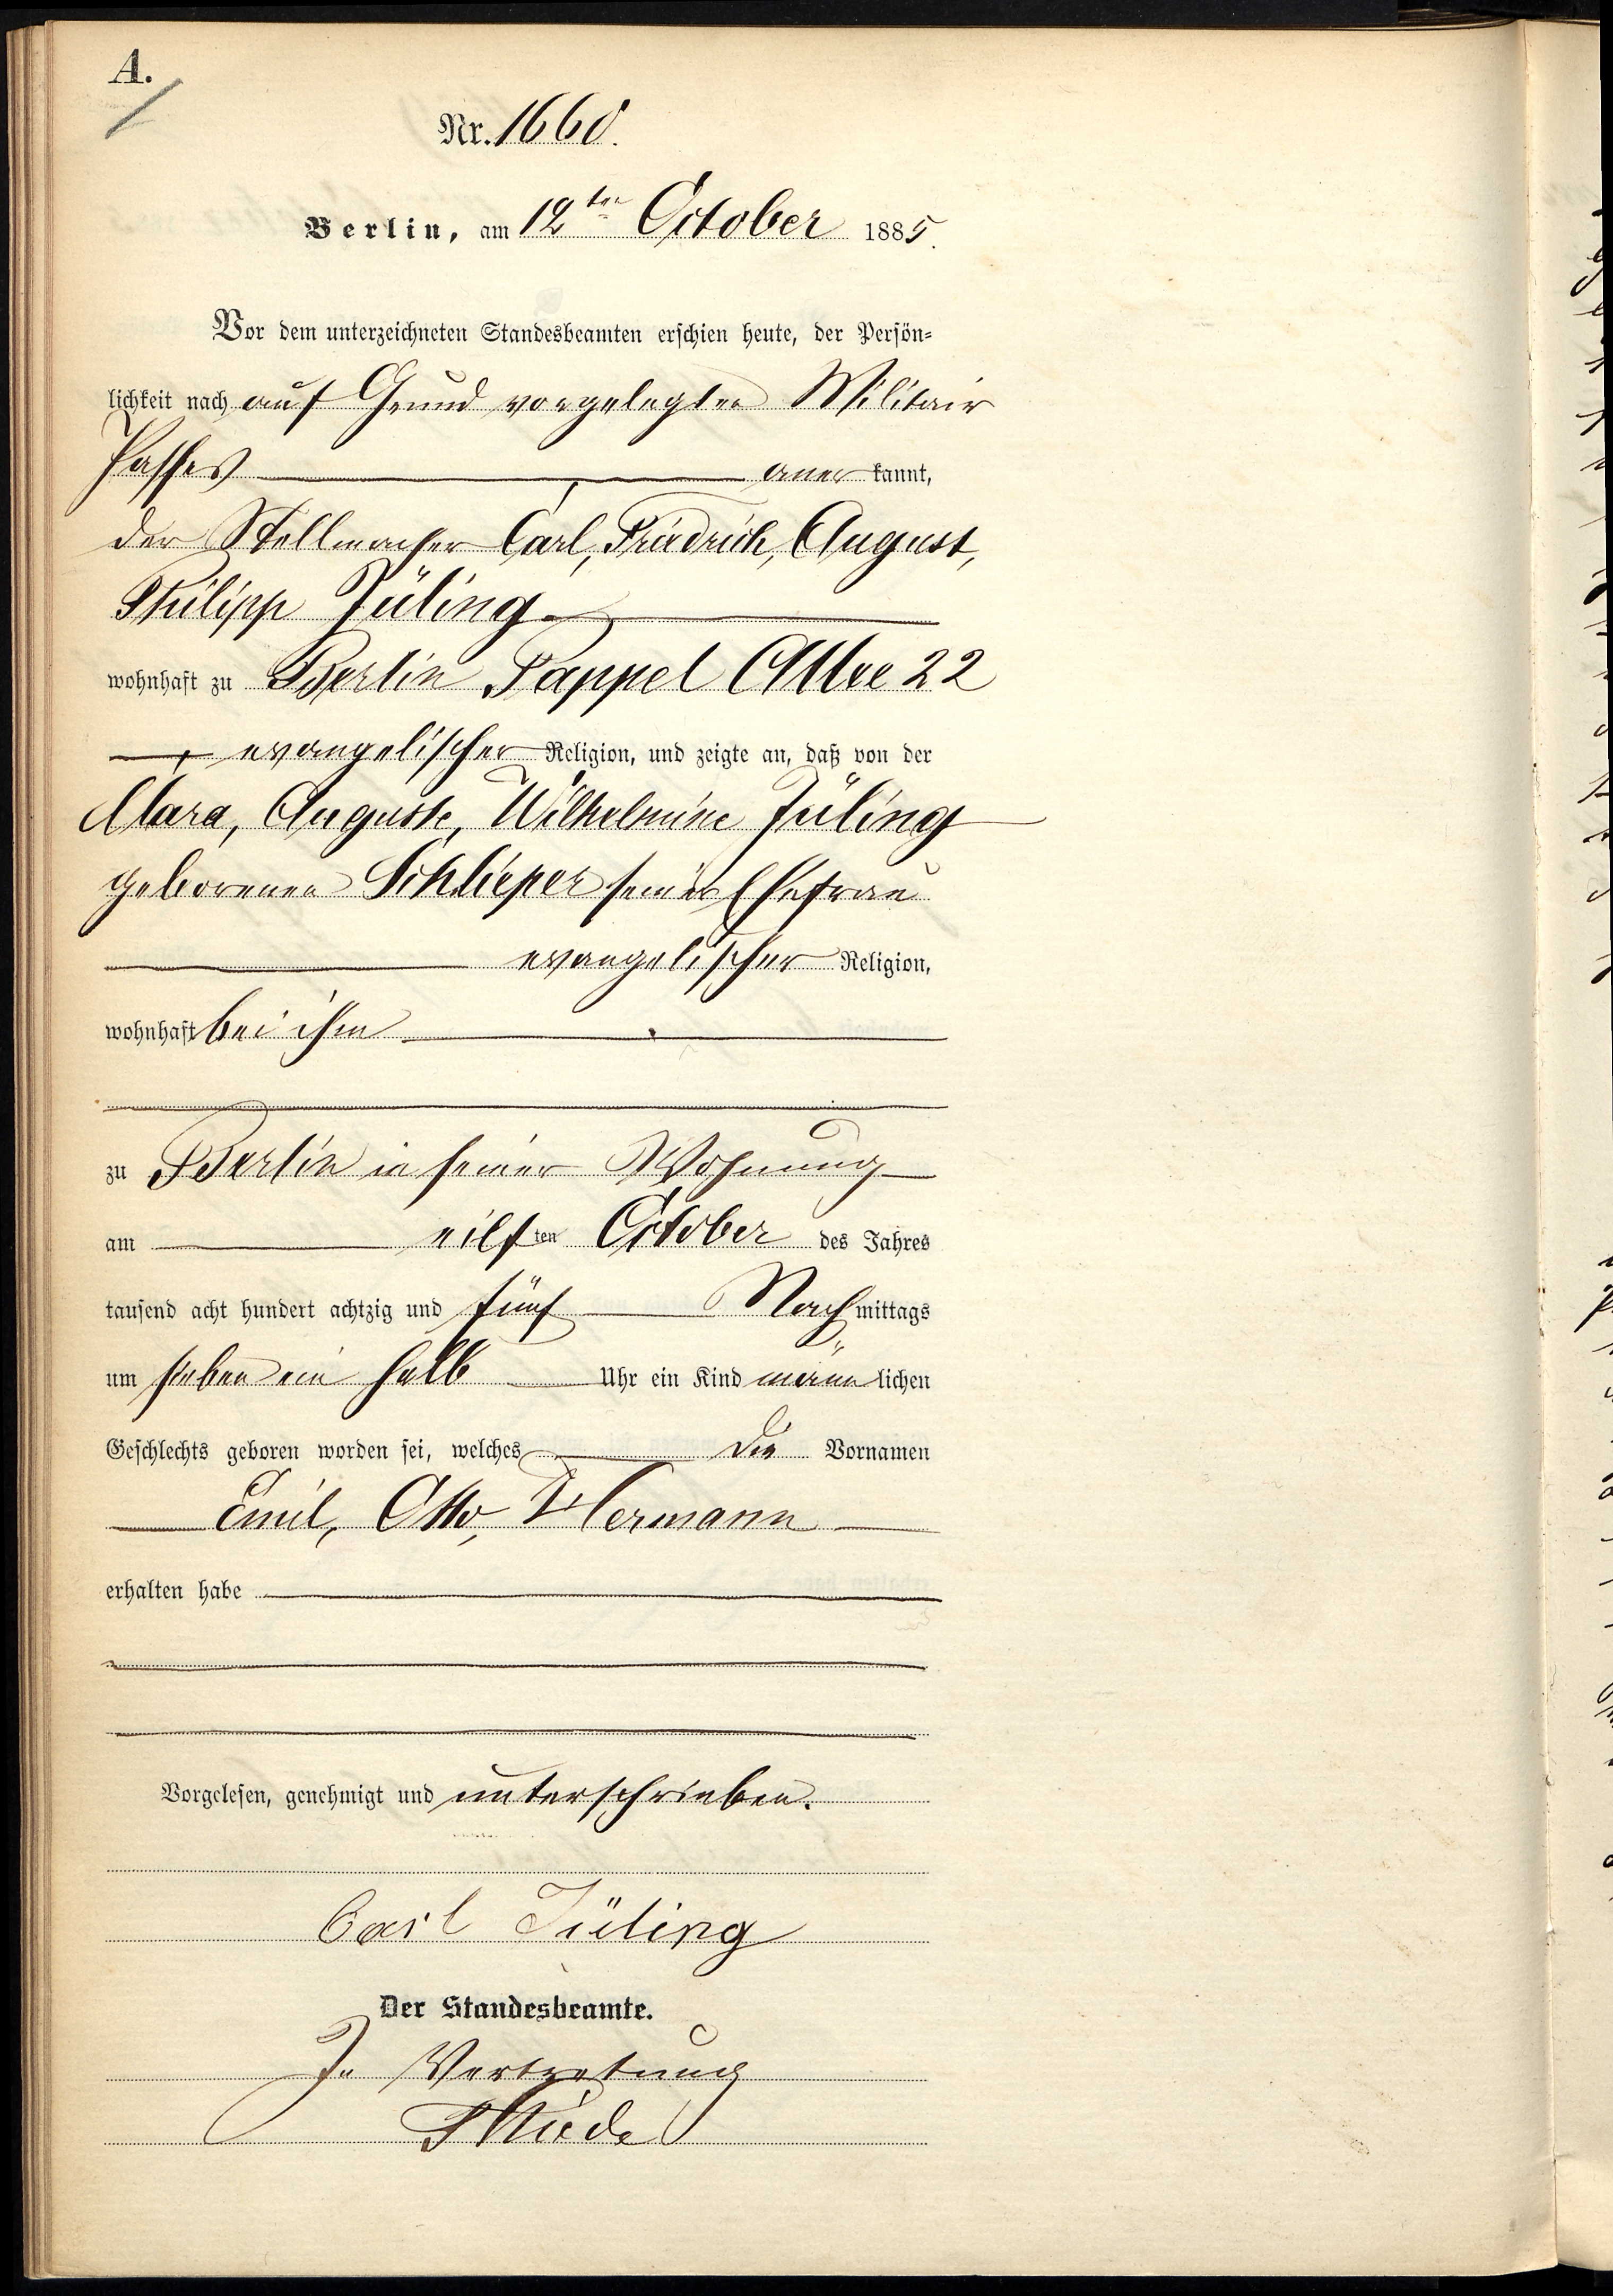 A.
Nr. 1660.
Berlin, am 12ten October 1885.
Vor dem unterzeichneten Standesbeamten erschien heute, der Persön-
lichkeit nach auf Grund vorgelegten Militair
Passes aner kannt,
der Stellmacher Carl, Friedrich, August,
Philipp Jüling
wohnhaft zu Berlin Pappel Allee 22
evangelischer Religion, und zeigte an, daß von der
Clara, Auguste, Wilhelmine Jüling
geborenen Schlieper seiner Ehefrau
evangelischer Religion,
wohnhaft bei ihm
zu Berlin in seiner Wohnung
am eilften October des Jahres
tausend acht hundert achtzig und fünf Nachmittags
um sieben ein halb Uhr ein Kind männlichen
Geschlechts geboren worden sei, welches die Vornamen
Emil, Otto, Hermann
erhalten habe
Vorgelesen, genehmigt und unterschrieben.
Carl Jüling
Der Standesbeamte.
In Vertretung